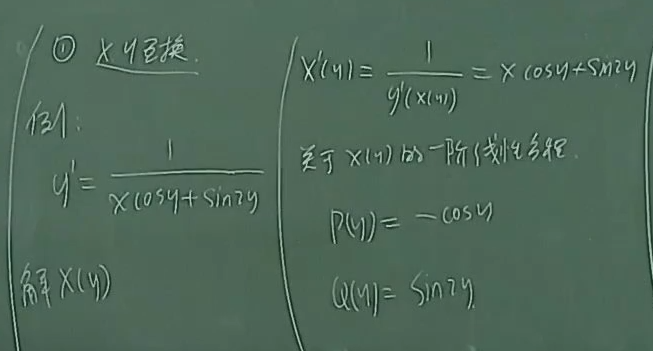 ① x y互换.
例:
y' = 1/(x cosy + sin2y)
解 x(y)
x'(y) ≡ 1/(y'(x(y))) = x cosy + sin2y
关于 x(y) 的一阶线性方程.
P(y) = -cosy
Q(y) = sin2y.